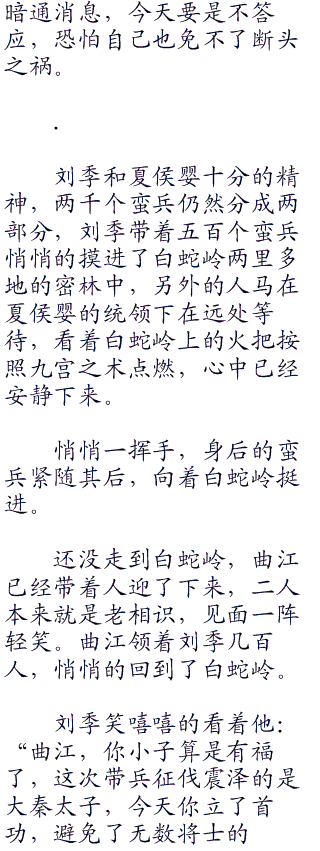 暗通消息，今天要是不答
应，恐怕自己也免不了断头
之祸。
.
刘季和夏侯婴十分的精
神，两千个蛮兵仍然分成两
部分，刘季带着五百个蛮兵
悄悄的摸进了白蛇岭两里多
地的密林中，另外的人马在
夏侯婴的统领下在远处等
待，看着白蛇岭上的火把按
照九宫之术点燃，心中已经
安静下来。
悄悄一挥手，身后的蛮
兵紧随其后，向着白蛇岭挺
进。
还没走到白蛇岭，曲江
已经带着人迎了下来，二人
本来就是老相识，见面一阵
轻笑。曲江领着刘季几百
人，悄悄的回到了白蛇岭。
刘季笑嘻嘻的看着他：
“曲江，你小子算是有福
了，这次带兵征伐震泽的是
大秦太子，今天你立了首
功，避免了无数将士的